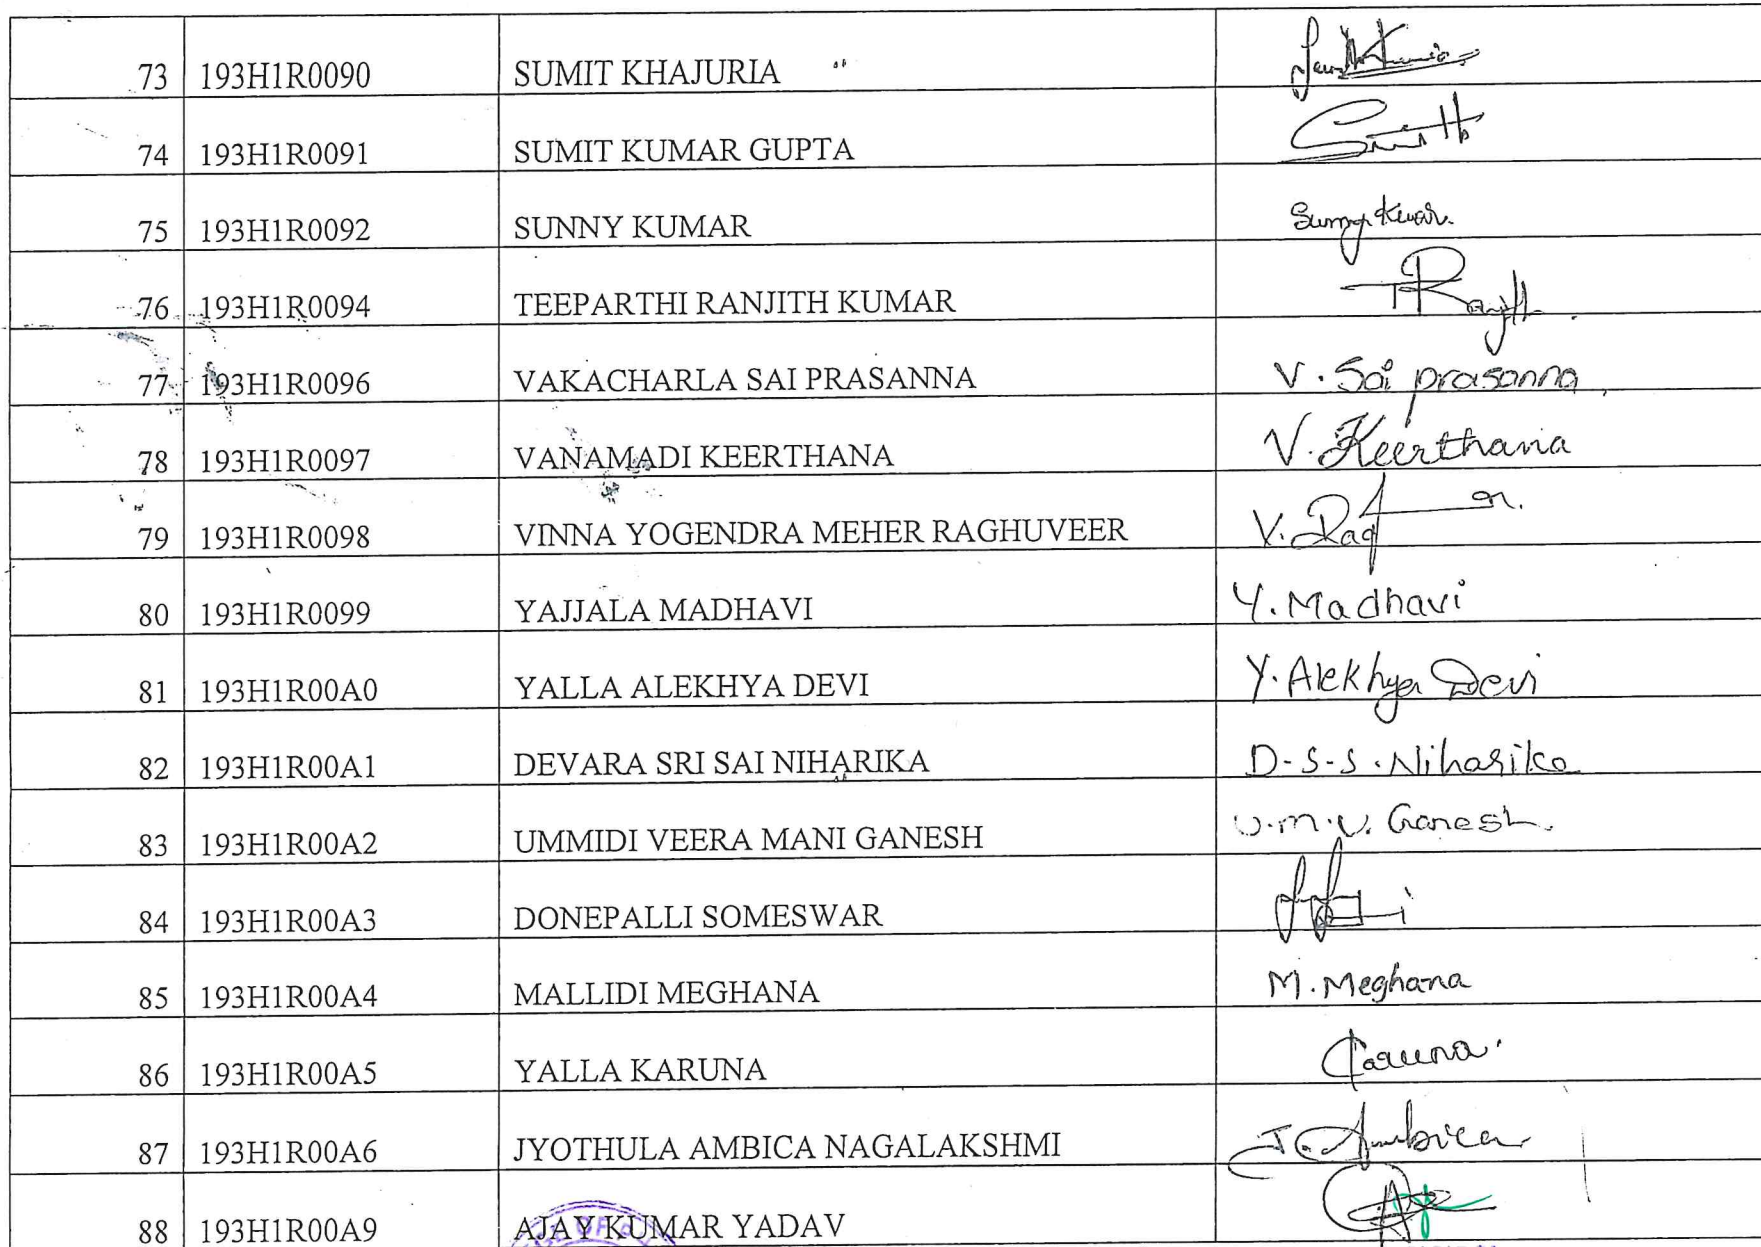 73 193H1R0090 SUMIT KHAJURIA
74 193H1R0091 SUMIT KUMAR GUPTA Sumit
75 193H1R0092 SUNNY KUMAR Sunny Kumar
76 193H1R0094 TEEPARTHI RANJITH KUMAR T Ranjith
77 193H1R0096 VAKACHARLA SAI PRASANNA V. Sai prasanna
78 193H1R0097 VANAMADI KEERTHANA V. Keerthana
79 193H1R0098 VINNA YOGENDRA MEHER RAGHUVEER V. Rag
80 193H1R0099 YAJJALA MADHAVI Y. Madhavi
81 193H1R00A0 YALLA ALEKHYA DEVI Y. Alekhya Devi
82 193H1R00A1 DEVARA SRI SAI NIHARIKA D-S-S. Niharika
83 193H1R00A2 UMMIDI VEERA MANI GANESH U.M.V. Ganesh.
84 193H1R00A3 DONEPALLI SOMESWAR
85 193H1R00A4 MALLIDI MEGHANA M. Meghana
86 193H1R00A5 YALLA KARUNA Karuna
87 193H1R00A6 JYOTHULA AMBICA NAGALAKSHMI J. Ambica
88 193H1R00A9 AJAY KUMAR YADAV